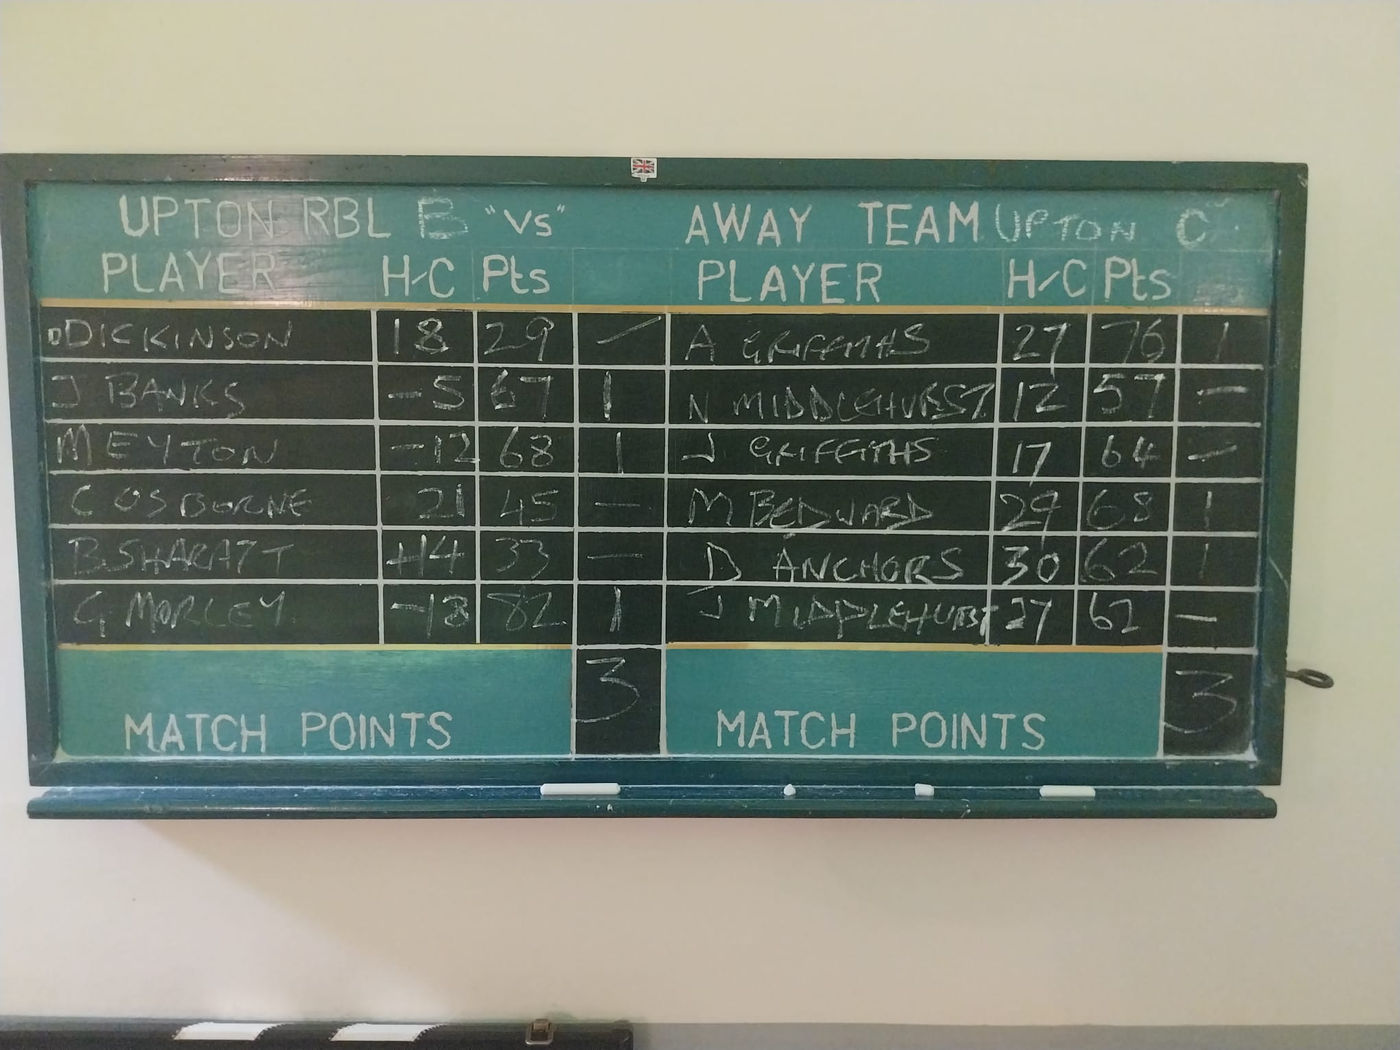 UPTON RBL B "Vs" AWAY TEAM UPTON C
PLAYER H/C Pts PLAYER H/C Pts
D DICKINSON 18 29 — A GRIFFITHS 27 76 1
J BANKS -5 67 1 N MIDDLEHURST 12 57 —
M EYTON -12 68 1 J GRIFFITHS 17 64 —
C OSBORNE 21 45 — M BEDWARD 29 68 1
B SHARATT +14 33 — D ANCHORS 30 62 1
G MORLEY -18 82 1 J MIDDLEHURST 27 62 —
3 3
MATCH POINTS MATCH POINTS